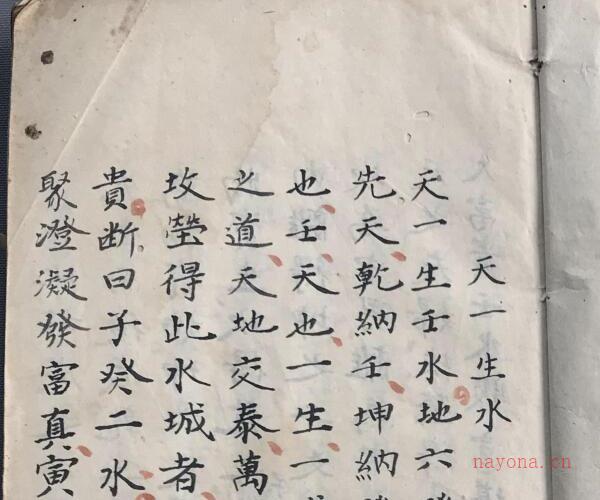 天一生水
天一生壬水地六
先天乾納壬坤納
也壬天也一生一
之道天地交泰萬
坟塋得此水城者
貴断曰子癸二水
聚澄凝發富真寅
nayona.cn